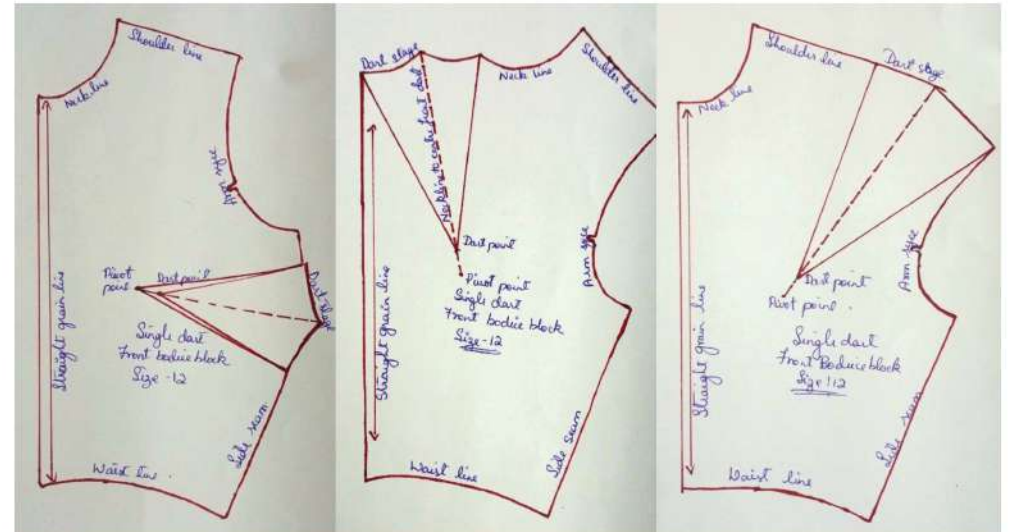 Shoulder line
Neck line
Arm syce
Straight grain line
Pivot
point
Dart point
Dart stage
Single dart
Front bodice block
Size -12
Side seam
Waist line.
Dart stage
Neck line
Shoulder line
Neckline to centre front dart
Straight grain line
Dart point
Arm syce
Pivot point
Single dart
Front bodice block
Size-12
Side seam
Waist line
Shoulder line
Dart stage
Neck line
Arm syce
Straight grain line
Dart point
Pivot point.
Single dart
Front Bodice block
Size : 12
Side seam
Waist line